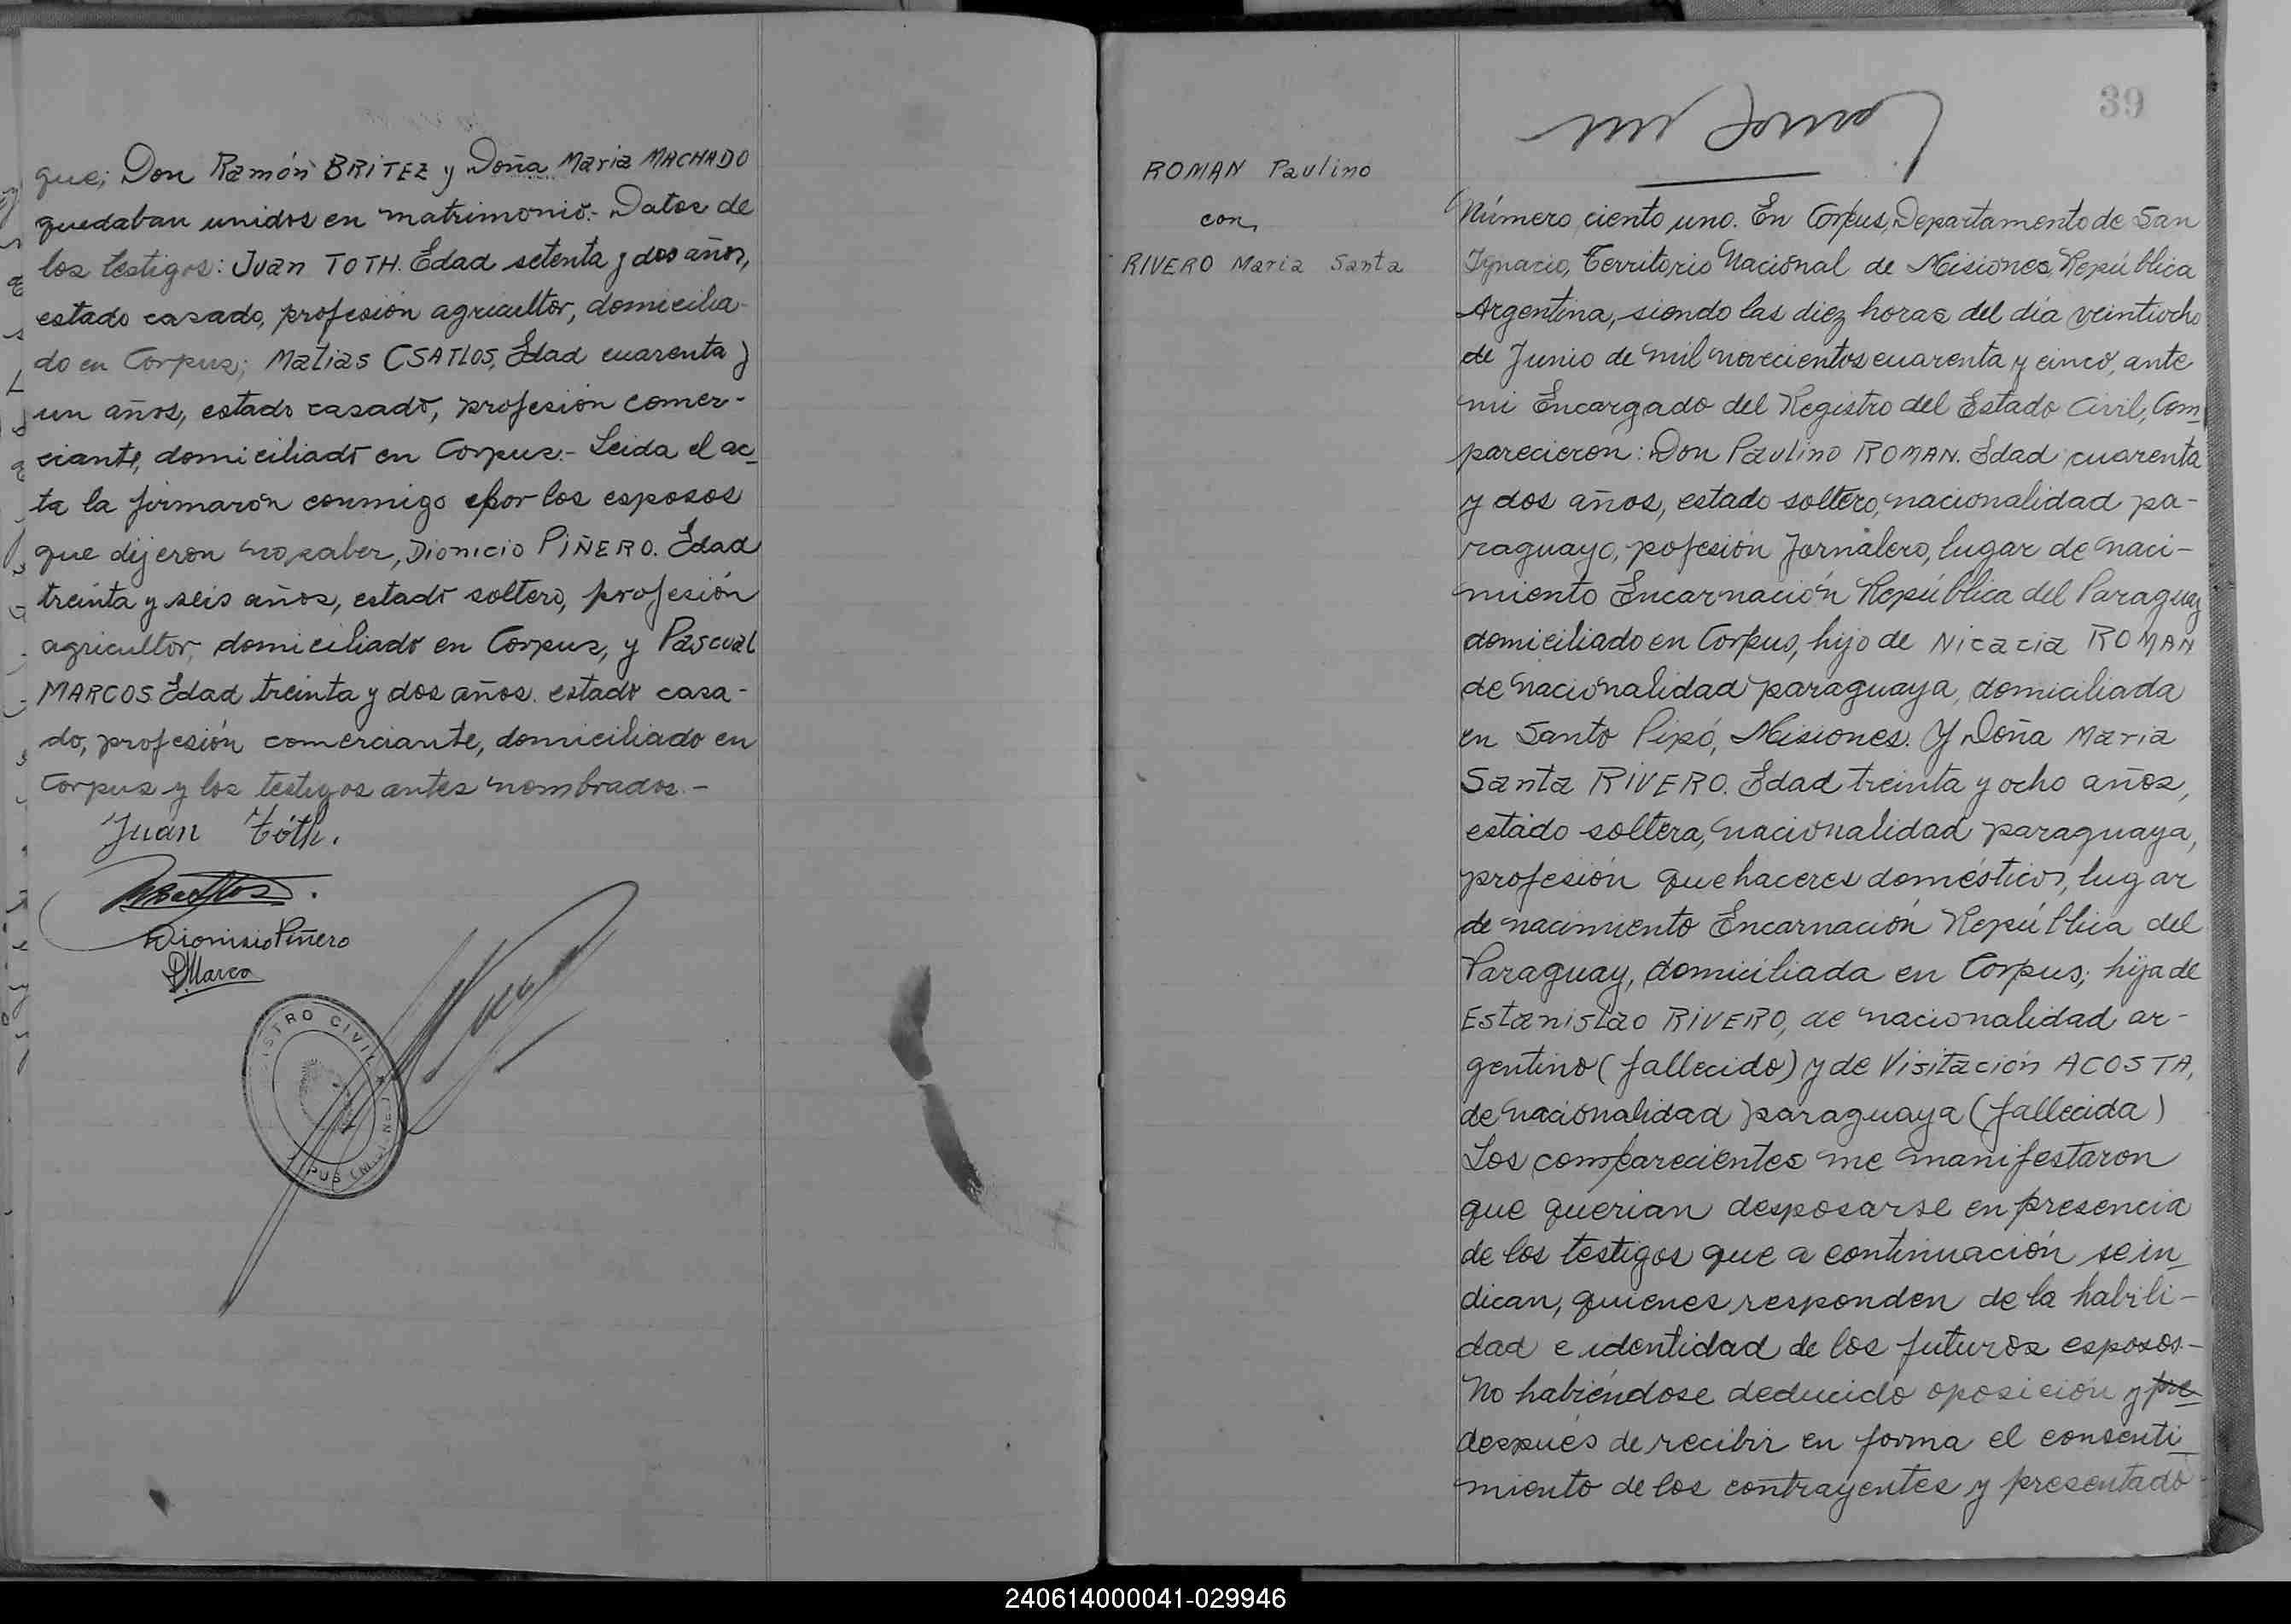 que; Don Ramón BRITEZ y Doña Maria MACHADO
quedaban unidos en matrimonio.- Datos de
los testigos: Juan TOTH. Edad setenta y dos años,
estado casado, profesión agricultor, domicilia-
do en Corpus; Matias CSATLOS, Edad cuarenta y
un años, estado casado, profesión comer-
ciante, domiciliado en Corpus.- Leida el ac-
ta la firmarón conmigo por los esposos
que dijeron no saber, Dionicio PIÑERO. Edad
treinta y seis años, estado soltero, profesión
agricultor, domiciliado en Corpus, y Pascual
MARCOS Edad treinta y dos años. estado casa-
do, profesión comerciante, domiciliado en
Corpus y los testigos antes nombrados.-
Juán Tóth.
Dionisio Piñero
P. Marco
ISTRO CIVIL
PUS (M
39
ROMAN Paulino
con
RIVERO Maria Santa
Número ciento uno. En Corpus, Departamento de San
Ignacio, Territorio Nacional de Misiones, República
Argentina, siendo las diez horas del día veintiocho
de Junio de mil novecientos cuarenta y cinco, ante
mi Encargado del Registro del Estado Civil, Com
parecieron: Don Paulino ROMAN. Edad cuarenta
y dos años, estado soltero, nacionalidad pa-
raguayo, pofesión Jornalero, lugar de naci-
miento Encarnación República del Paraguay
domiciliado en Corpus, hijo de Nicacia ROMAN
de nacionalidad paraguaya, domiciliada
en Santo Pipó, Misiones. Y Doña Maria
Santa RIVERO. Edad treinta y ocho años,
estado soltera, nacionalidad paraguaya,
profesión quehaceres domésticos, lugar
de nacimiento Encarnación República del
Paraguay, domiciliada en Corpus; hija de
Estanislao RIVERO, de nacionalidad ar-
gentino (fallecido) y de Visitación ACOSTA,
de nacionalidad paraguaya (fallecida)
Los comparecientes me manifestaron
que querian desposarse en presencia
de los testigos que a continuación se in
dican, quienes responden de la habili-
dad e identidad de los futuros esposos.-
No habiéndose deducido oposición y pre
después de recibir en forma el consenti
miento de los contrayentes y presentado
240614000041-029946